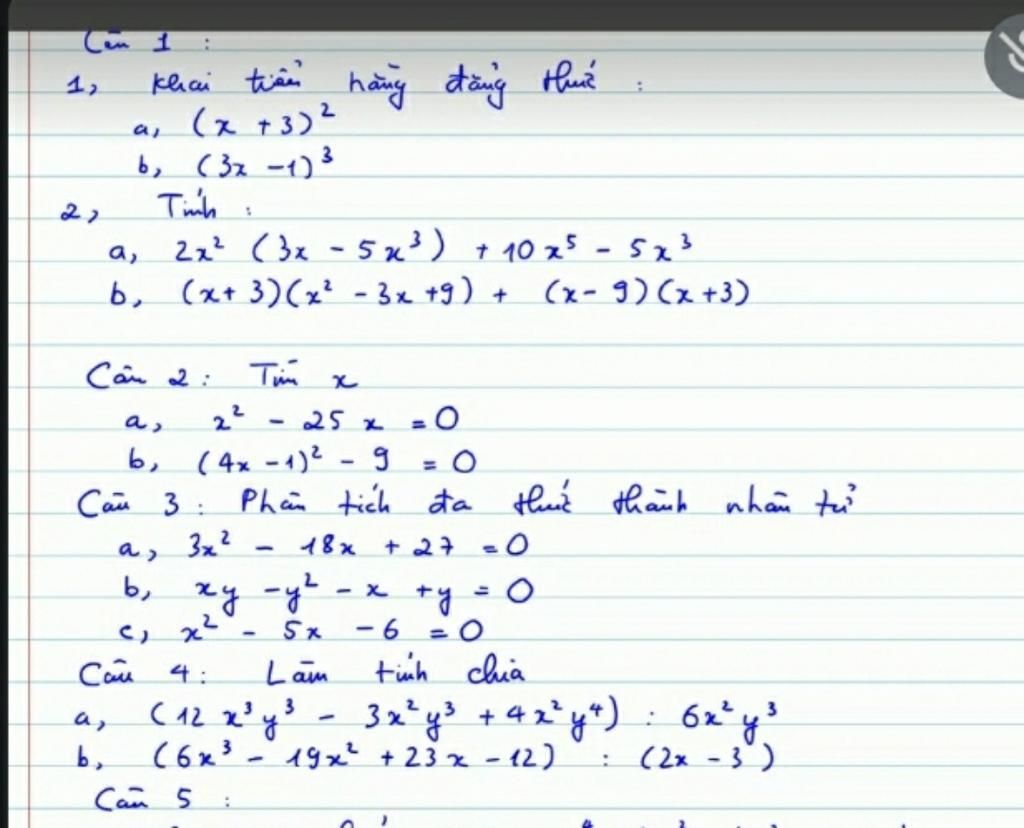 Câu 1 :
1, Khai triển hằng đẳng thức :
a, (x + 3)²
b, (3x - 1)³
2, Tính :
a, 2x² (3x - 5x³) + 10x⁵ - 5x³
b, (x + 3)(x² - 3x + 9) + (x - 9)(x + 3)
Câu 2 : Tìm x
a, x² - 25x = 0
b, (4x - 1)² - 9 = 0
Câu 3 : Phân tích đa thức thành nhân tử
a, 3x² - 18x + 27 = 0
b, xy - y² - x + y = 0
c, x² - 5x - 6 = 0
Câu 4 : Làm tính chia
a, (12x³y³ - 3x²y³ + 4x²y⁴) : 6x²y³
b, (6x³ - 19x² + 23x - 12) : (2x - 3)
Câu 5 :